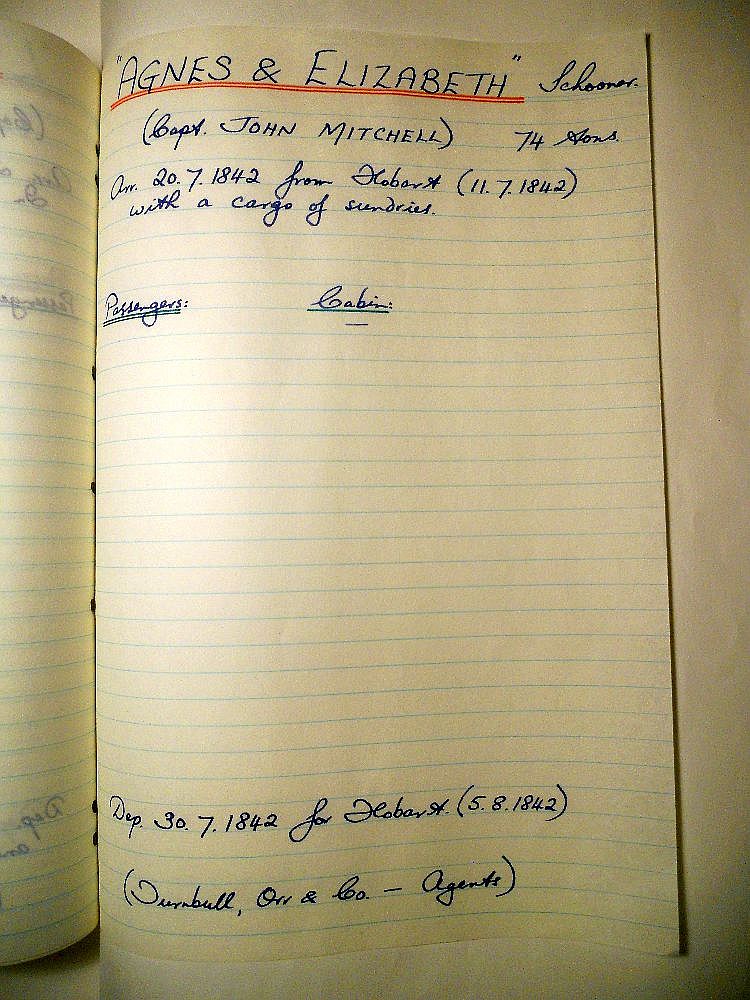 "AGNES & ELIZABETH" Schooner.
(Capt. JOHN MITCHELL) 74 tons.
Arr. 20.7.1842 from Hobart (11.7.1842)
with a cargo of sundries.
Passengers: Cabin:
—
Dep. 30.7.1842 for Hobart. (5.8.1842)
(Turnbull, Orr & Co. — Agents)